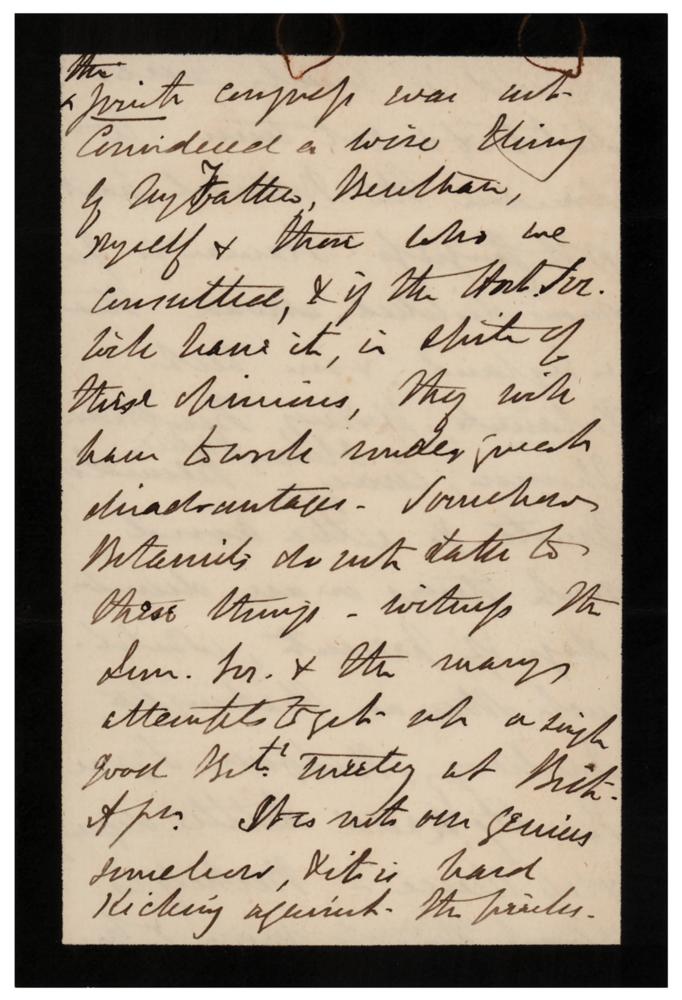 the
joint congress was not
considered a wise thing
by my Father, Bentham,
myself & those who we
consulted, & if the Hort. Soc.
will have it, in spite of
these opinions, they will
have to work under great
disadvantages - Somehow
Botanists do not take to
these things - witness the
Linn. Soc. & the many
attempts to get up a single
good Bot.l meeting at Brit.
Assn. It is not our genius
somehow, & it is hard
Kicking against the pricks.